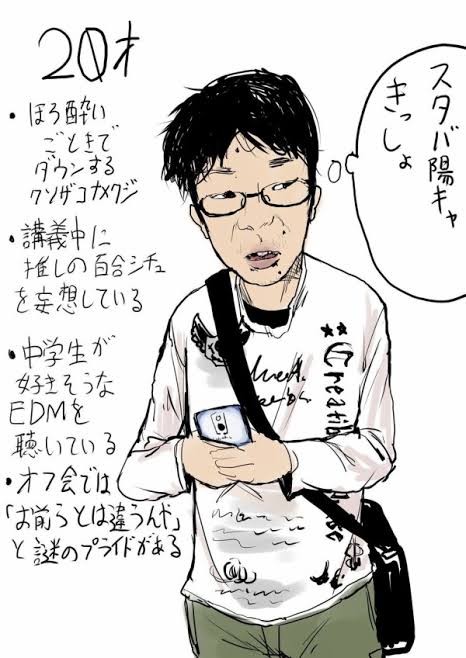 20才
・ほろ酔い
ごときで
ダウンする
クソザコナメクジ
・講義中に
推しの百合シチュ
を妄想している
・中学生が
好きそうな
EDMを
聴いている
・オフ会では
「お前らとは違うんだ」
と謎のプライドがある
スタバ陽キャ
きっしょ
**Creatib